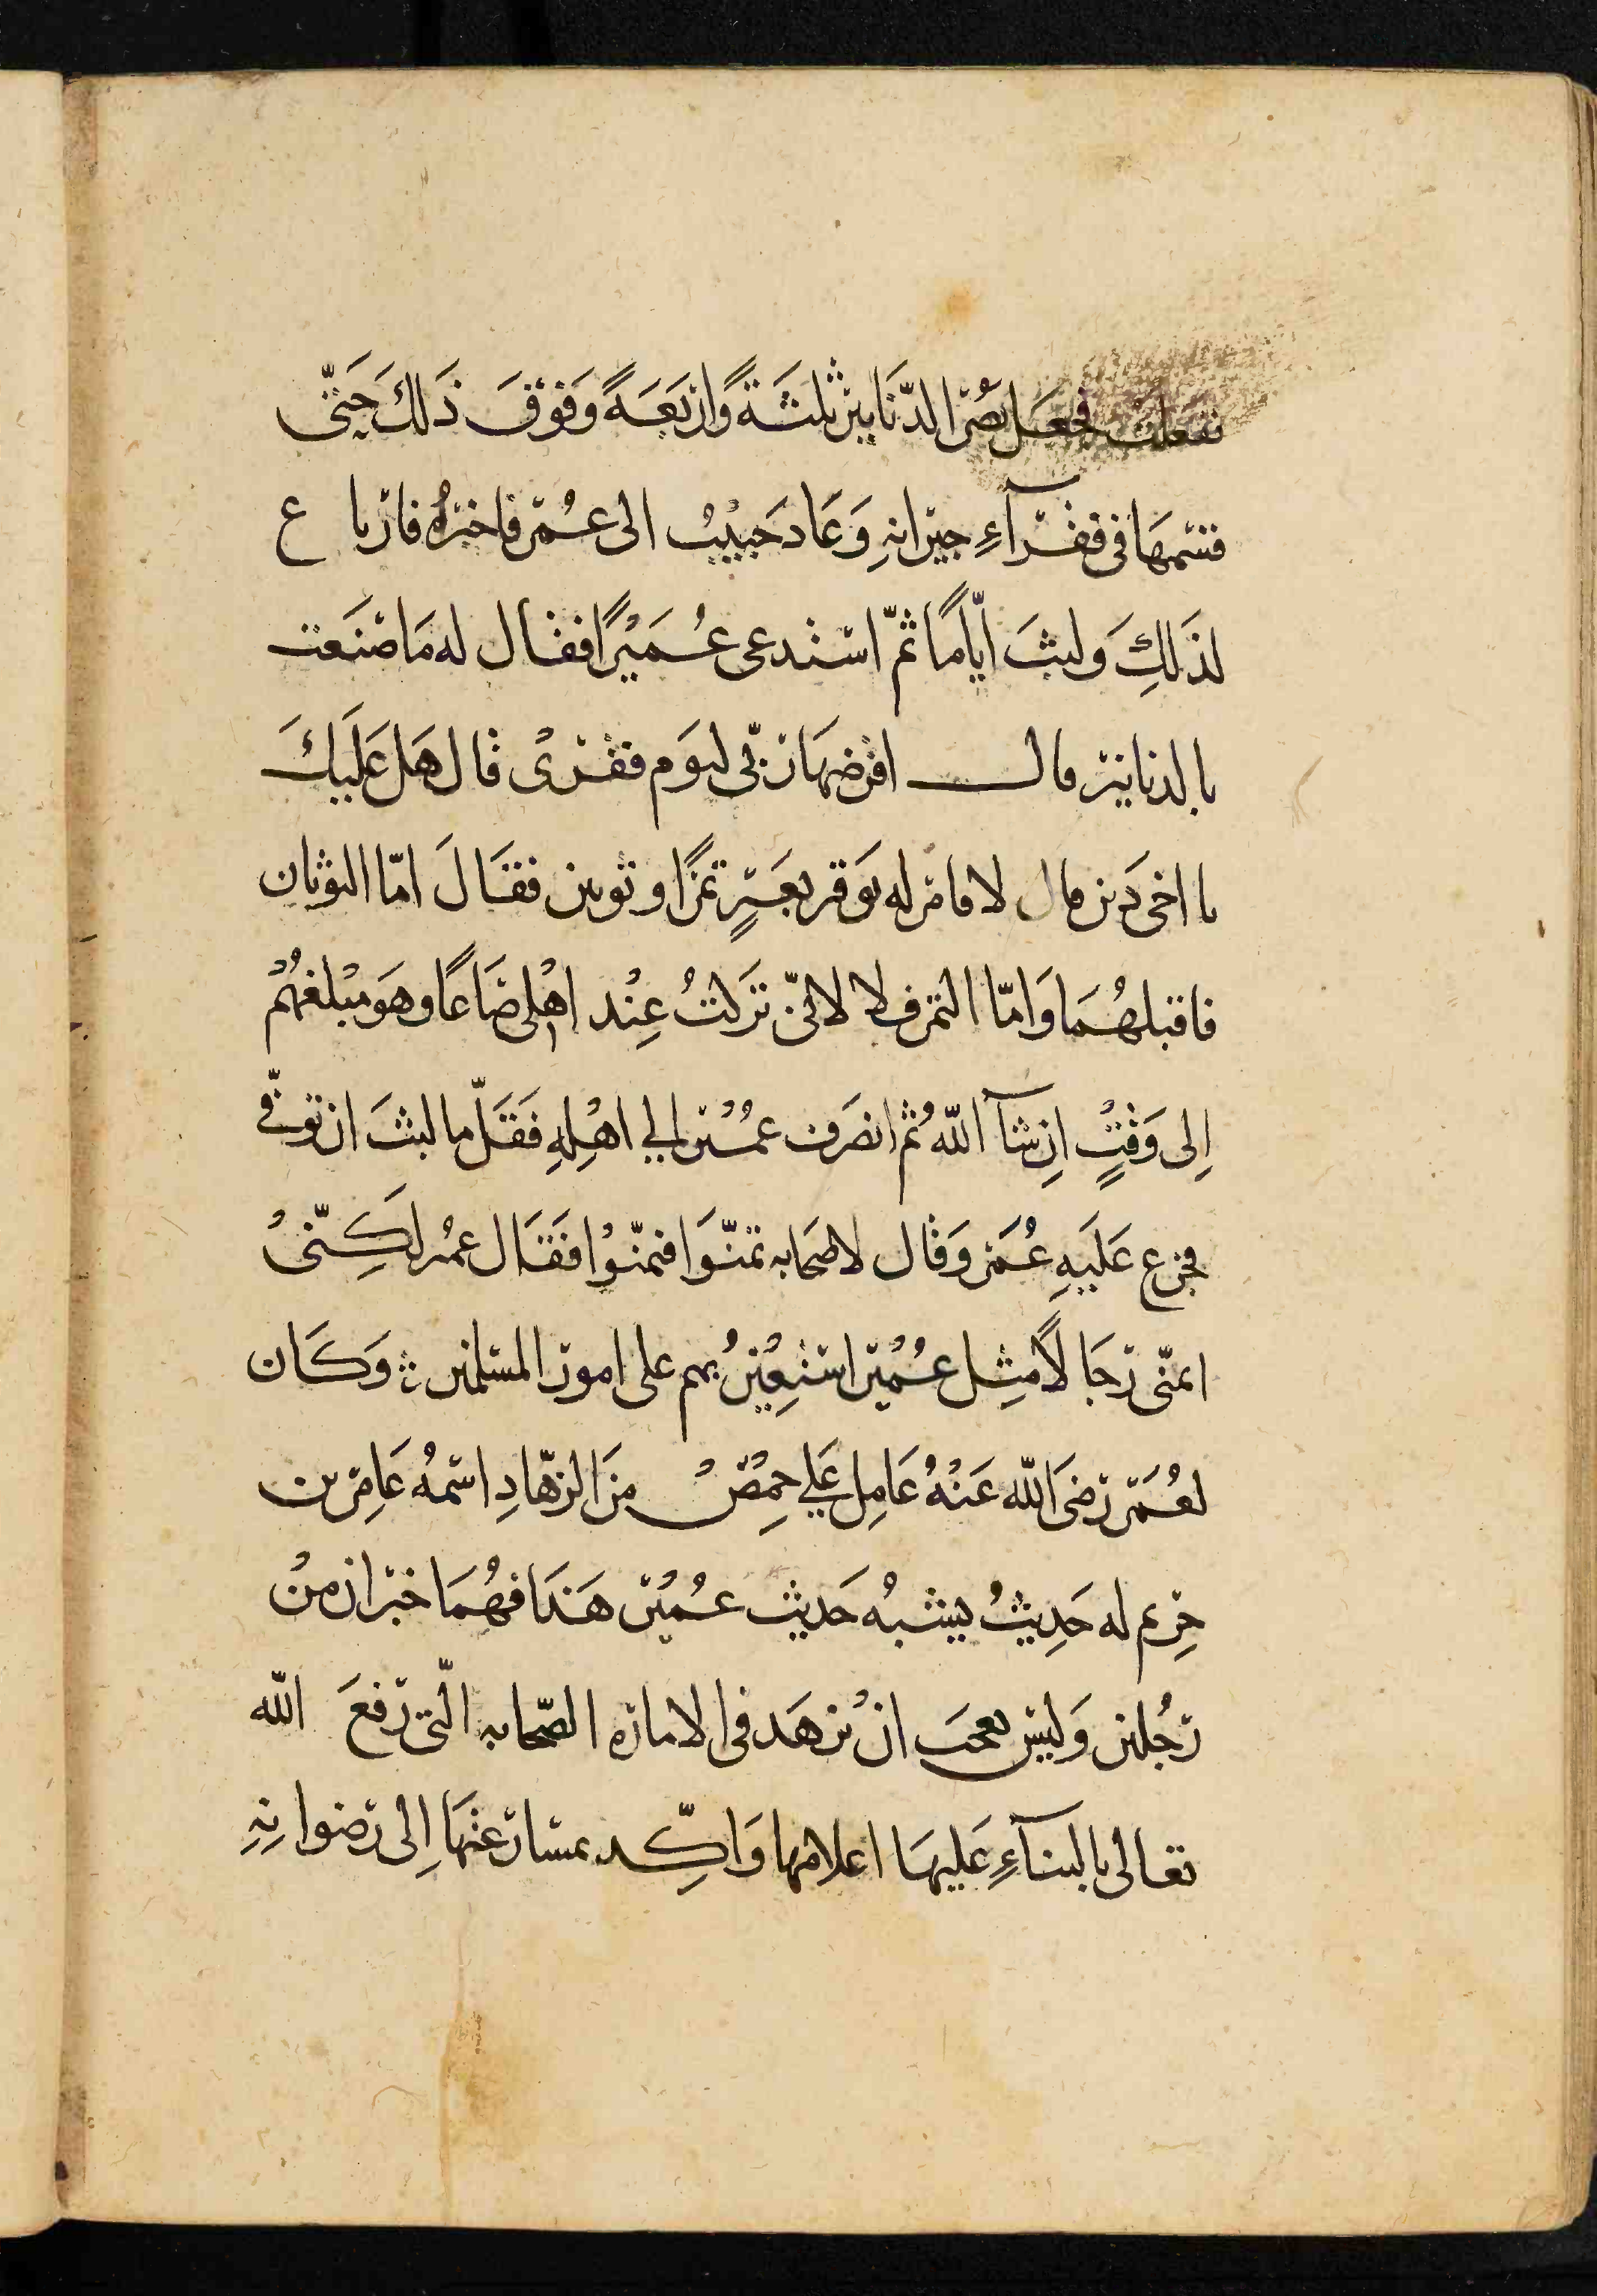 ففعلت فجعل يصر الدّنانير ثلثَةً وَاربَعَةً وَفَوقَ ذَلكَ حَتّى
قسّمهَا فى فقرآءِ جيرانهِ وَعَادَ حَبيْبُ الى عُمر فاخبرُه فارتاع
لذَلكَ ولبثَ ايّامًا ثمّ استدعى عُمَيْرًا فقال له مَا صَنَعت
بالدنانير قال اقرضهَا ربّى ليَوم فقرى قال هَل عَلَيكَ
يا اخى دَين قال لا فامر له بوقر بعَيرٍ تمرًا وثوبين فقَالَ امّا الثوبان
فاقبلهُمَا وَامّا التمر فلا لانّى تَركتُ عِنْد اهْلى صَاعًا وهوَ مبْلغهُمْ
اِلى وَقْتٍ اِن شآ اللّه ثُم انصَرف عمُيْر الى اهْلِهِ فَقَلّ ما لبثَ ان توفّى
فجزع عَلَيهِ عُمَر وَقال لاصحَابه تمنّوَا فتمنّوْا فَقَال عمُر لكِنّىْ
اتمنّى رجَالاً مثِل عُمُيْر استعِيْنُ بهم على امور المسلمين ؞ وَكَان
لعُمَر رَضىَ اللّه عَنْهُ عَامِل عَلى حِمْصْ مِنَ الزهّادِ اسمهُ عَامِر بن
حِزيم له حَدِيثُ يشبهُ حَديث عُمُيْر هَذَا فهُمَا خبران منْ
رَجُلين وَليسَ بعجَب انْ يزهَد فى الاماره الصّحابه الّتى رَفعَ اللّه
تعالى بالبنآءِ عَليهَا اعلامها وَاكِّد بمسَارعَتهَا اِلى رضوانهِ